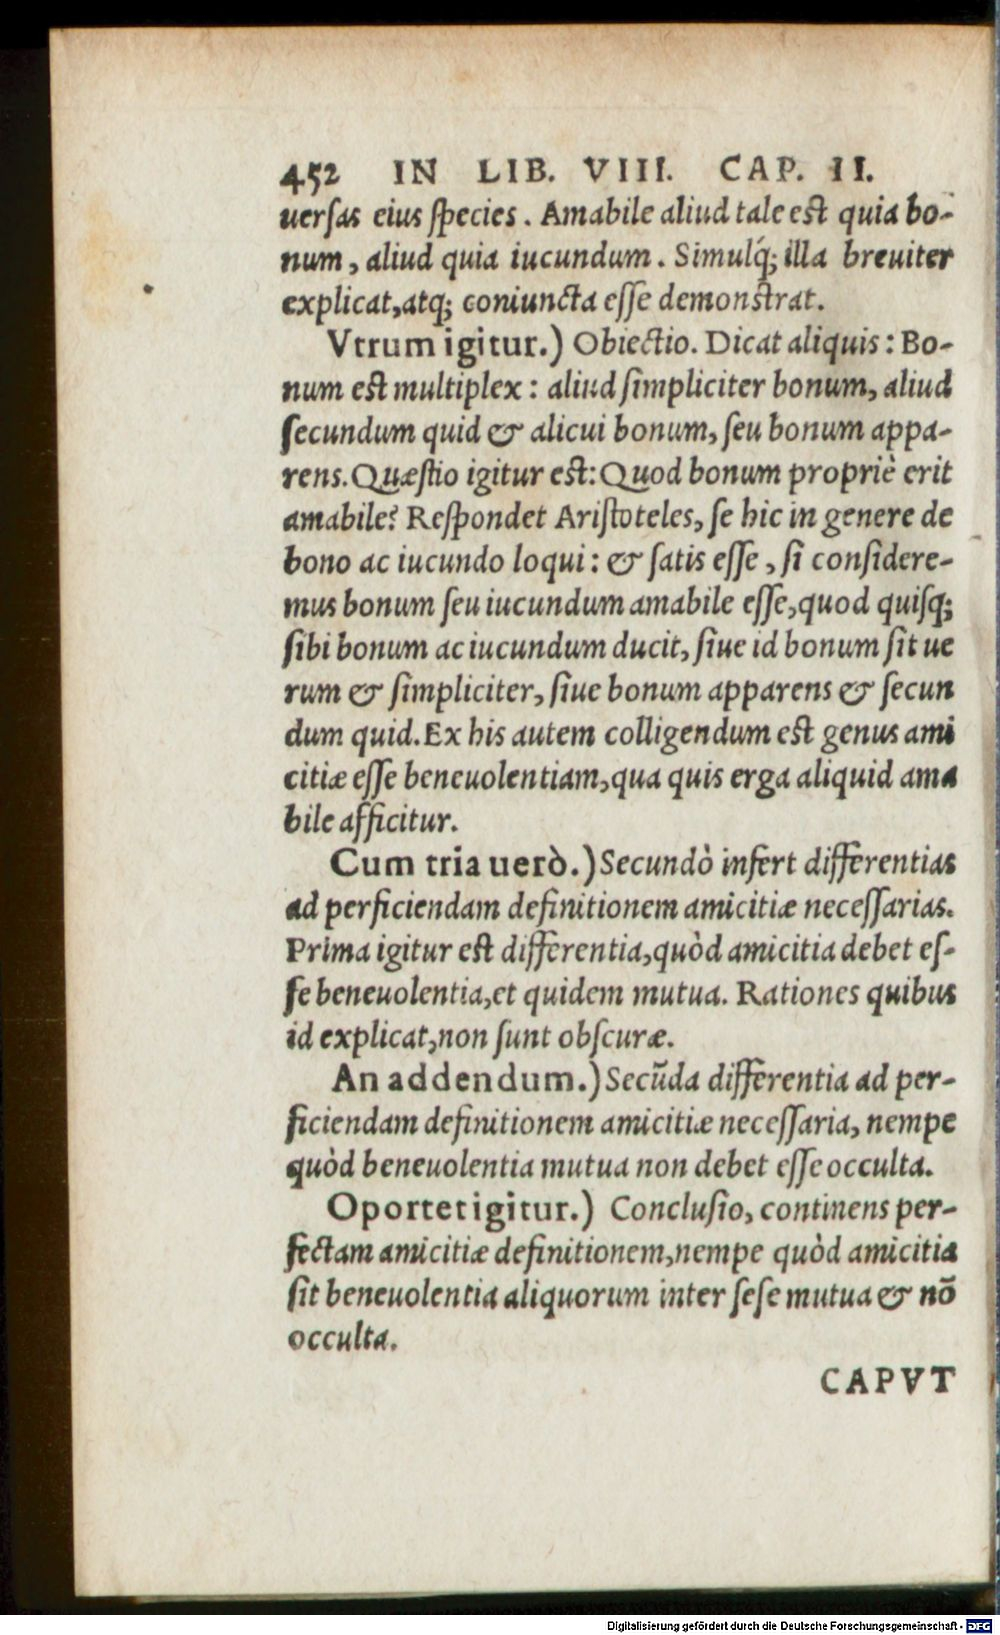 452 IN LIB. VIII. CAP. II.
uerſas eius ſpecies. Amabile aliud tale est quia bo-
num, aliud quia iucundum. Simulq́; illa breuiter
explicat, atq; coniuncta eſſe demonstrat.
Vtrum igitur.) Obiectio. Dicat aliquis: Bo-
num est multiplex: aliud ſimpliciter bonum, aliud
ſecundum quid & alicui bonum, ſeu bonum appa-
rens. Quæſtio igitur est: Quod bonum propriè erit
amabile? Reſpondet Ariſtoteles, ſe hic in genere de
bono ac iucundo loqui: & ſatis eſſe, ſi conſidere-
mus bonum ſeu iucundum amabile eſſe, quod quiſq;
ſibi bonum ac iucundum ducit, ſiue id bonum ſit ue
rum & ſimpliciter, ſiue bonum apparens & ſecun
dum quid. Ex his autem colligendum est genus ami
citiæ eſſe beneuolentiam, qua quis erga aliquid ama
bile afficitur.
Cum tria uerò.) Secundò infert differentias
ad perficiendam definitionem amicitiæ neceſſarias.
Prima igitur est differentia, quòd amicitia debet eſ-
ſe beneuolentia, et quidem mutua. Rationes quibus
id explicat, non ſunt obſcuræ.
An addendum.) Secūda differentia ad per-
ficiendam definitionem amicitiæ neceſſaria, nempe
quòd beneuolentia mutua non debet eſſe occulta.
Oportet igitur.) Concluſio, continens per-
fectam amicitiæ definitionem, nempe quòd amicitia
ſit beneuolentia aliquorum inter ſeſe mutua & nō
occulta.
CAPVT
Digitalisierung gefördert durch die Deutsche Forschungsgemeinschaft - DFG